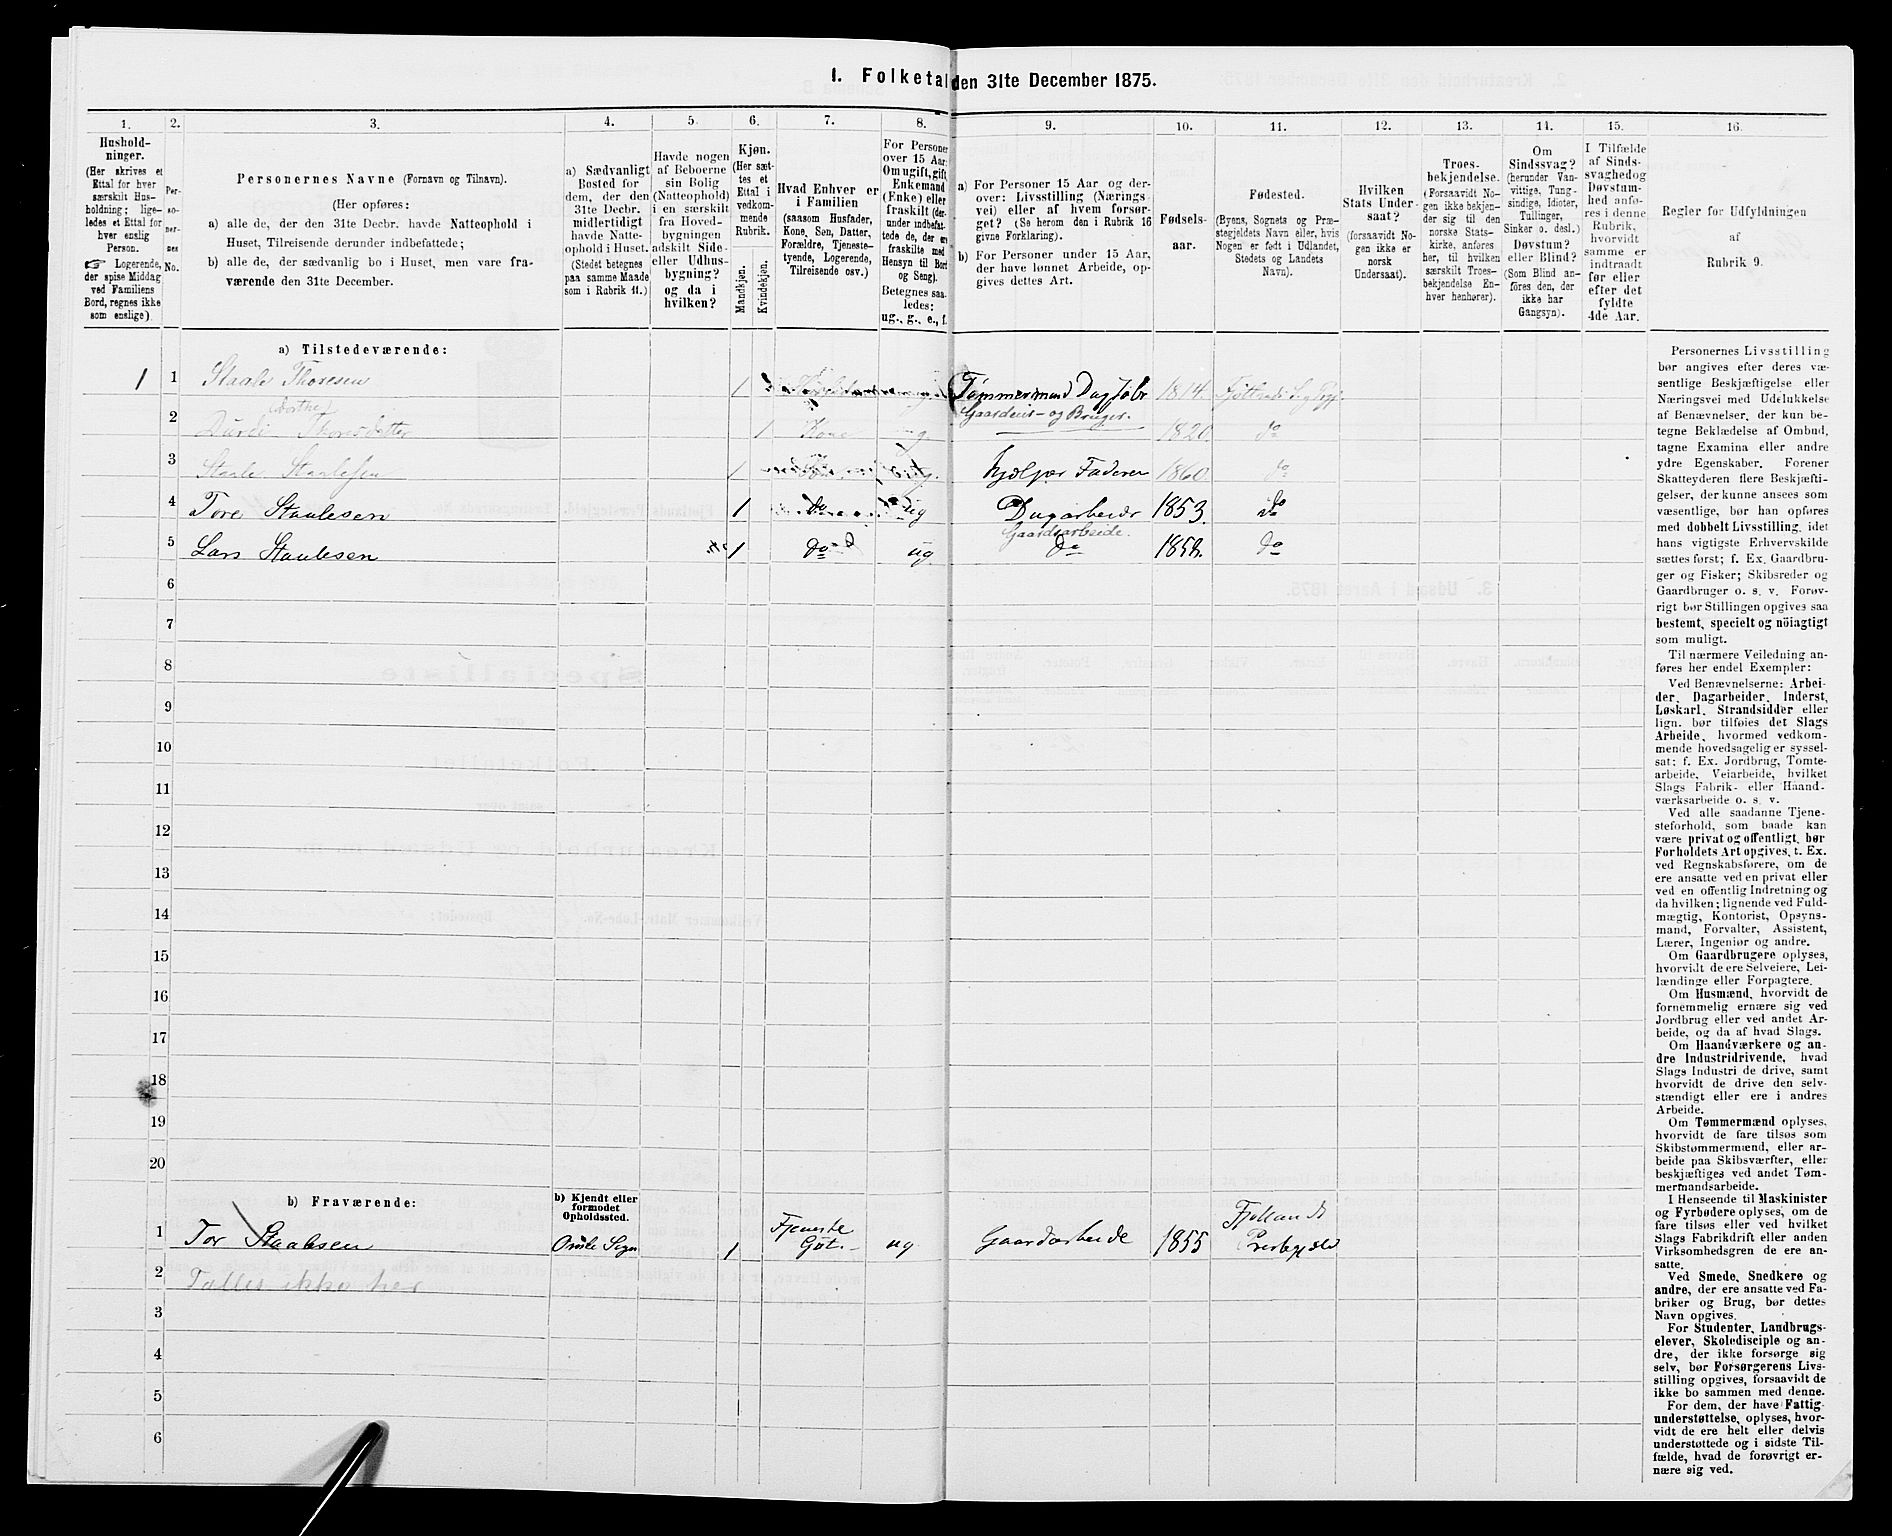 I. Folketal den 31te December 1875.
1.
Hushold-
ninger.
(Her skrives et
Ettal for hver
særskilt Hus-
holdning; lige-
ledes et Ettal for
hver enslig
Person.
☞ Logerende,
der spise Middag
ved Familiens
Bord, regnes ikke
som enslige).
2.
Per-
so-
ner-
nes
No.
3.
Personernes Navne (Fornavn og Tilnavn).
(Her opføres:
a) alle de, der den 31te Decbr. havde Natteophold i
Huset, Tilreisende derunder indbefattede;
b) alle de, der sædvanlig bo i Huset, men vare fra-
værende den 31te December.
4.
a) Sædvanligt
Bosted for
dem, der den
31te Decbr.
midlertidigt
havde Natte-
ophold i Huset.
(Stedet betegnes
paa samme Maade
som i Rubrik 11.)
5.
Havde nogen
af Beboerne
sin Bolig
(Natteophold)
i en særskilt
fra Hoved-
bygningen
adskilt Side-
eller Udhus-
bygning?
og da i
hvilken?
6.
Kjøn.
(Her sæt-
tes et
Ettal i
vedkom-
mende
Rubrik.
Mandkjøn.
Kvindekjøn.
7.
Hvad Enhver er
i Familien
(saasom Husfader,
Kone, Søn, Datter,
Forældre, Tjeneste-
tyende, Logerende,
Tilreisende osv.)
8.
For Personer
over 15 Aar:
Om ugift, gift,
Enkemand
(Enke) eller
fraskilt (der-
under indbefat-
tede de, der ere
fraskilte med
Hensyn til Bord
og Seng).
Betegnes saa-
ledes:
ug., g., e., f.
9.
a) For Personer 15 Aar og der-
over: Livsstilling (Nærings-
vei) eller af hvem forsør-
get? (Se herom den i Rubrik 16
givne Forklaring).
b) For Personer under 15 Aar,
der have lønnet Arbeide, op-
gives dettes Art.
10.
Fødsels-
aar.
11.
Fødested.
(Byens, Sognets og Præ-
stegjeldets Navn eller, hvis
Nogen er født i Udlandet,
Stedets og Landets
Navn).
12.
Hvilken
Stats Under-
saat?
(forsaavidt No-
gen ikke er
norsk
Undersaat).
13.
Troes-
bekjendelse.
(Forsaavidt No-
gen ikke bekjen-
der sig til den
norske Stats-
kirke, anføres
her, til hvilken
særskilt Troes-
bekjendelse En-
hver henhører).
14.
Om
Sindssvag?
(herunder Van-
vittige, Tung-
sindige, Idioter,
Tullinger,
Sinker o. desl.)
Døvstum?
eller Blind?
(Som Blind an-
føres den, der
ikke har
Gangsyn).
15.
I Tilfælde
af Sinds-
svaghed og
Døvstum-
hed anfø-
res i denne
Rubrik,
hvorvidt
samme er
indtraadt
før eller
efter det
fyldte
4de Aar.
16.
Regler for Udfyldningen
af
Rubrik 9.
a) Tilstedeværende:
1 1 Staale Thoresen 1 Tømmermand Dagjobr 1814.
Gaardeier- og Bruger.
(Dorthe)
2 Thoresdatter 1 Kone g 1820. do
3 Staale Staalesen 1 hjælper Faderen 1860. do
4 Tore Staalesen 1 do ug Dagarbeider 1853. do
Gaardsarbeide.
5 Lars Staalesen 1 do ug. do do
6
7
8
9
10
11
12
13
14
15
16
17
18
19
20
b) Fraværende:
b) Kjendt eller
formodet
Opholdssted.
1 Tor Staalesen Sogn 1 Tjeneste Gut. ug Gaardarbeide 1855 Fjotlands Prestegjeld
2 Tælles ikke her
3
4
5
6
Personernes Livsstilling
bør angives efter deres væ-
sentlige Beskjæftigelse eller
Næringsvei med Udelukkelse
af Benævnelser, der kun be-
tegne Beklædelse af Ombud,
tagne Examina eller andre
ydre Egenskaber. Forener
Skatteyderen flere Beskjæfti-
gelser, der kunne ansees som
væsentlige, bør han opføres
med dobbelt Livsstilling, idet
hans vigtigste Erhvervskilde
sættes først; f. Ex. Gaardbru-
ger og Fisker; Skibsreder og
Gaardbruger o. s. v. Forøv-
rigt bør Stillingen opgives saa
bestemt, specielt og nöiagtigt
som muligt.
Til nærmere Veiledning an-
føres her endel Exempler:
Ved Benævnelserne: Arbei-
der, Dagarbeider, Inderst,
Løskarl, Strandsidder eller
lign. bør tilføies det Slags
Arbeide, hvormed vedkom-
mende hovedsagelig er syssel-
sat; f. Ex. Jordbrug, Tomte-
arbeide, Veiarbeide, hvilket
Slags Fabrik- eller Haand-
værksarbeide o. s. v.
Ved alle saadanne Tjene-
steforhold, som baade kan
være privat og offentligt, bør
Forholdets Art opgives, t. Ex.
ved Regnskabsførere, om de
ere ansatte ved en privat eller
ved en offentlig Indretning og
da hvilken; lignende ved Fuld-
mægtig, Kontorist, Opsyns-
mand, Forvalter, Assistent,
Lærer, Ingeniør og andre.
Om Gaardbrugere oplyses,
hvorvidt de ere Selveiere, Lei-
lændinge eller Forpagtere.
Om Husmænd, hvorvidt de
fornemmelig ernære sig ved
Jordbrug eller ved andet Ar-
beide, og da af hvad Slags.
Om Haandværkere og an-
dre Industridrivende, hvad
Slags Industri de drive, samt
hvorvidt de drive den selv-
stændigt eller ere i andres
Arbeide.
Om Tømmermænd oplyses,
hvorvidt de fare tilsøs som
Skibstømmermænd, eller ar-
beide paa Skibsværfter, eller
beskjæftiges ved andet Tøm-
mermandsarbeide.
I Henseende til Maskinister
og Fyrbødere oplyses, om de
fare tilsøs eller ved hvilket
Slags Fabrikdrift eller anden
Virksomhedsgren de ere an-
satte.
Ved Smede, Snedkere og
andre, der ere ansatte ved Fa-
briker og Brug, bør dettes
Navn opgives.
For Studenter, Landbrugs-
elever, Skoledisciple og an-
dre, der ikke forsørge sig
selv, bør Forsørgerens Livs-
stilling opgives, forsaavidt de
ikke bo sammen med denne.
For dem, der have Fattig-
understøttelse, oplyses, hvor-
vidt de ere helt eller delvis
understøttede og i sidste Til-
fælde, hvad de forøvrigt er-
nære sig ved.